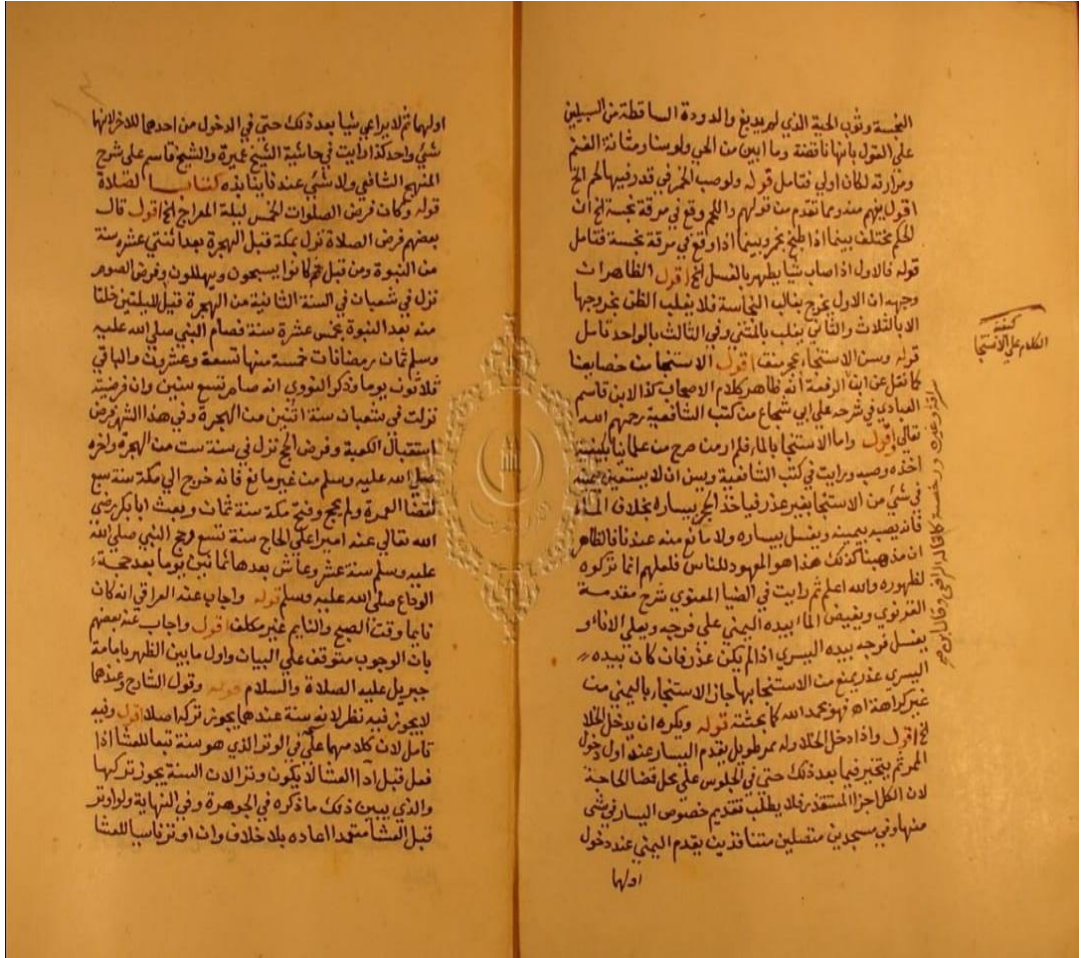 النجسة وثوب الحية الذي لم يدبغ والدودة الساقطة من السبيلين
علي القول بانها ناقضة وما ابين من الحي ولو سنا ومثانة الغنم
ومرارته لكان اولي فتامل قوله ولو صب الخمر في قدر فيها لحم الخ
اقول يفهم منه ومما تقدم من قولهم واللحم وقع في مرقة نجسة الخ ان
الحكم مختلف بينما اذا طبخ بخمر وبينما اذا وقع في مرقة نجسة فتامل
قوله فالاول اذا صاب شيا يطهر بالغسل الخ اقول الظاهر ان
وجهه ان الاول يخرج بغالب النجاسة فلا يغلب الظن بخروجها
الا بالثلاث والثاني يغلب بالمثني وفي الثالث بالواحد تامل
قوله وسن الاستنجاء بحجر منق اقول الاستنجا من خصايصنا
كما نقل عن ابن الرفعة انه ظاهر كلام الاصحاب كذا لابن قاسم
العبادي في شرحه علي ابي شجاع من كتب الشافعية رحمهم الله
تعالي اقول واما الاستنجا بالماء فلم ار من صرح من علمائنا بكيفية
اخذه وصبه ورايت في كتب الشافعية ويسن ان لا يستعين بيمينه
في شي من الاستنجا بغير عذر فياخذ الحجر بيساره بخلاف الماء
فانه يصبه بيمينه ويغسل بيساره ولا مانع منه عندنا فالظاهر
ان مذهبنا كذلك هذا هو المعهود للناس فلعلهم انما تركوه
لظهوره والله اعلم ثم رايت في الضيا المعنوي شرح مقدمة
الغزنوي ويفيض الماء بيده اليمني علي فرجه ويعلي الاناء و
يغسل فرجه بيده اليسري اذا لم يكن عذر فان كان بيده
اليسري عذر يمنع من الاستنجا بها جاز الاستنجا باليمني من
غير كراهة اه فهو بحمد الله كما بحثته قوله ويكره ان يدخل الخلا
الخ اقول واذا دخل الخلا وله ممر طويل يقدم اليسار عند اول دخول
الممر ثم يتخير فيما بعد ذلك حتي في الجلوس علي محل قضا الحاجة
لان الكل اجزا المستقذر فلا يطلب تقديم خصوص اليسار في شي
منها وفي مسجدين متصلين متنافذين يقدم اليمني عند دخول
اولها
كيفية
الكلام علي الاستنجا
اولها ثم لا يراعي شيا بعد ذلك حتي في الدخول من احدهما للاخر لانها
شي واحد كذا رايت في حاشية الشيخ عميرة والشيخ قاسم علي شرح
المنهج الشافعي ولا شي عندنا ينابذه كتاب الصلاة
قوله وكان فرض الصلوات الخمس ليلة المعراج الخ اقول قال
بعضهم فرض الصلاة نزل بمكة قبل الهجرة بعد اثنتي عشره سنة
من النبوة ومن قبل ثم كانوا يسبحون ويهللون وفرض الصوم
نزل في شعبان في السنة الثانية من الهجرة قبل لليلتين خلتا
منه بعد النبوة بخمس عشرة سنة فصام النبي صلي الله عليه
وسلم ثمان رمضانات خمسة منها تسعة وعشرون والباقي
ثلاثون يوما وذكر النووي انه صام تسع سنين وان فرضيته
نزلت في شعبان سنة اثنين من الهجرة وفي هذا الشهر فرض
استقبال الكعبة وفرض الحج نزل في سنة ست من الهجرة واخره
صلي الله عليه وسلم من غير مانع فانه خرج الي مكة سنة سبع
لقضا العمرة ولم يحج وفتح مكة سنة ثمان وبعث ابا بكر رضي
الله تعالي عنه اميرا علي الحاج سنة تسع وحج النبي صلي الله
عليه وسلم سنة عشر وعاش بعدها ثمانين يوما بعد حجة
الوداع صلي الله عليه وسلم قوله واجاب عنه العراقي انه كان
نايما وقت الصبح والنايم غير مكلف اقول واجاب عنه بعضهم
بان الوجوب متوقف علي البيان واول ما بين الظهر بامامة
جبريل عليه الصلاة والسلام قوله وقول الشارح وعندهما
لا يجوز فيه نظر لانه سنة عندهما يجوز تركه اصلا اقول وفيه
تامل لان كلامهما علي في الوتر الذي هو سنة تبعا للعشا اذا
فعل قبل اذا العشا لا يكون وترا لان السنة يجوز تركها
والذي يبين ذلك ما ذكره في الجوهرة وفي النهاية ولو اوتر
قبل العشا متعمدا اعاده بلا خلاف وان اوتر ناسيا للعشا